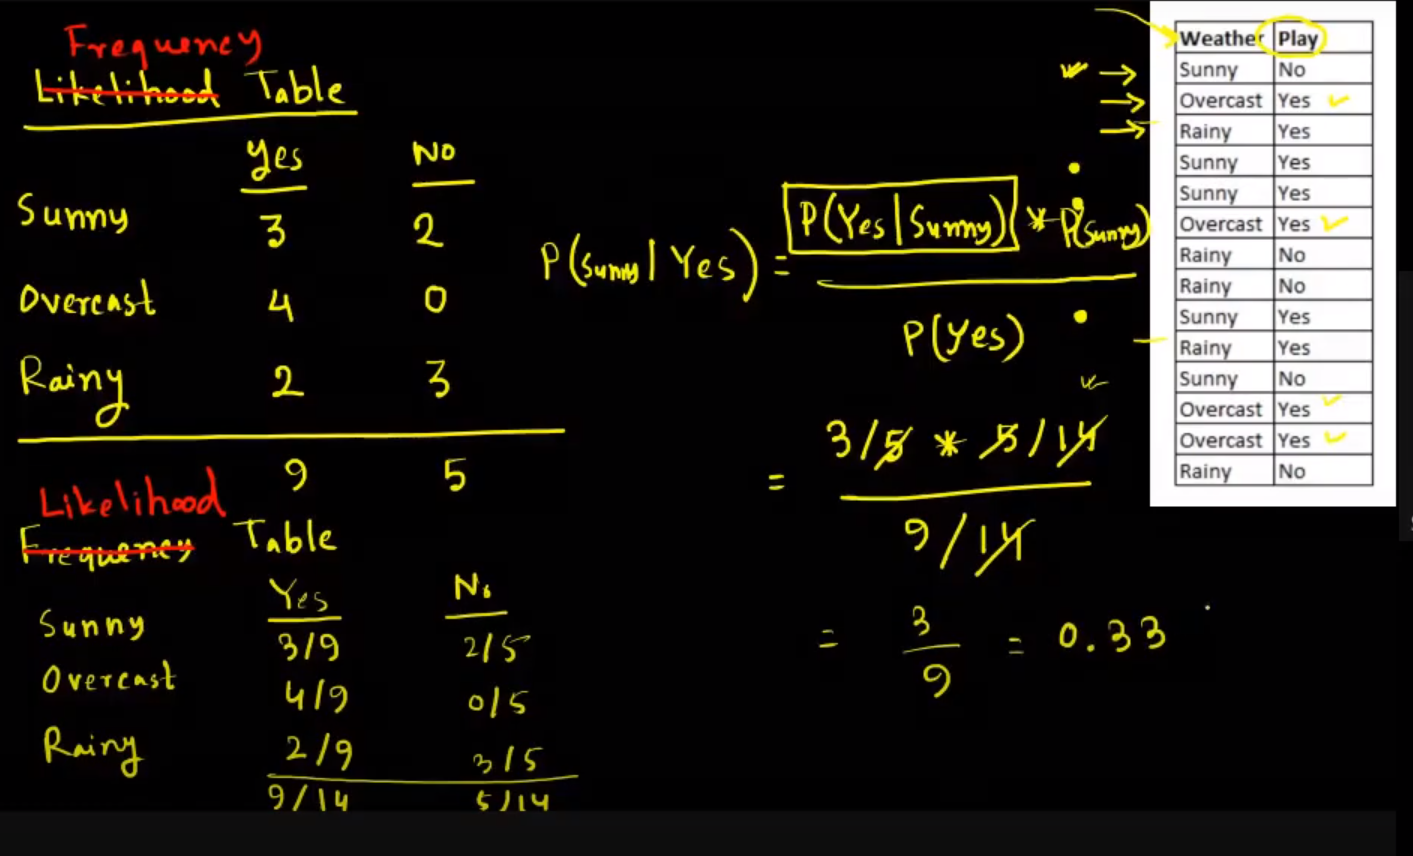 Frequency
Likelihood Table
Yes No
Sunny 3 2
Overcast 4 0
Rainy 2 3
9 5
Likelihood
Frequency Table
Yes No
Sunny 3/9 2/5
Overcast 4/9 0/5
Rainy 2/9 3/5
9/14 5/14
P(Sunny | Yes) = P(Yes | Sunny) * P(Sunny)
P(Yes)
= 3/5 * 5/14
9/14
= 3/9 = 0.33
Weather Play
Sunny No
Overcast Yes
Rainy Yes
Sunny Yes
Sunny Yes
Overcast Yes
Rainy No
Rainy No
Sunny Yes
Rainy Yes
Sunny No
Overcast Yes
Overcast Yes
Rainy No